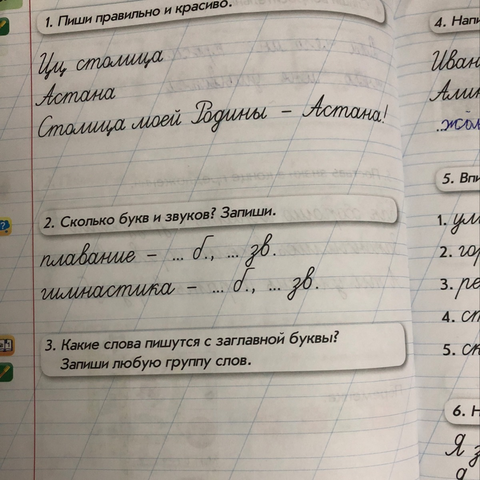 1. Пиши правильно и красиво.
Цц столица
Астана
Столица моей Родины – Астана!
2. Сколько букв и звуков? Запиши.
плавание – ... б., ... зв.
гимнастика – ... б., ... зв.
3. Какие слова пишутся с заглавной буквы?
Запиши любую группу слов.
4.
5.
1.
2.
3.
4.
5.
6.
Я